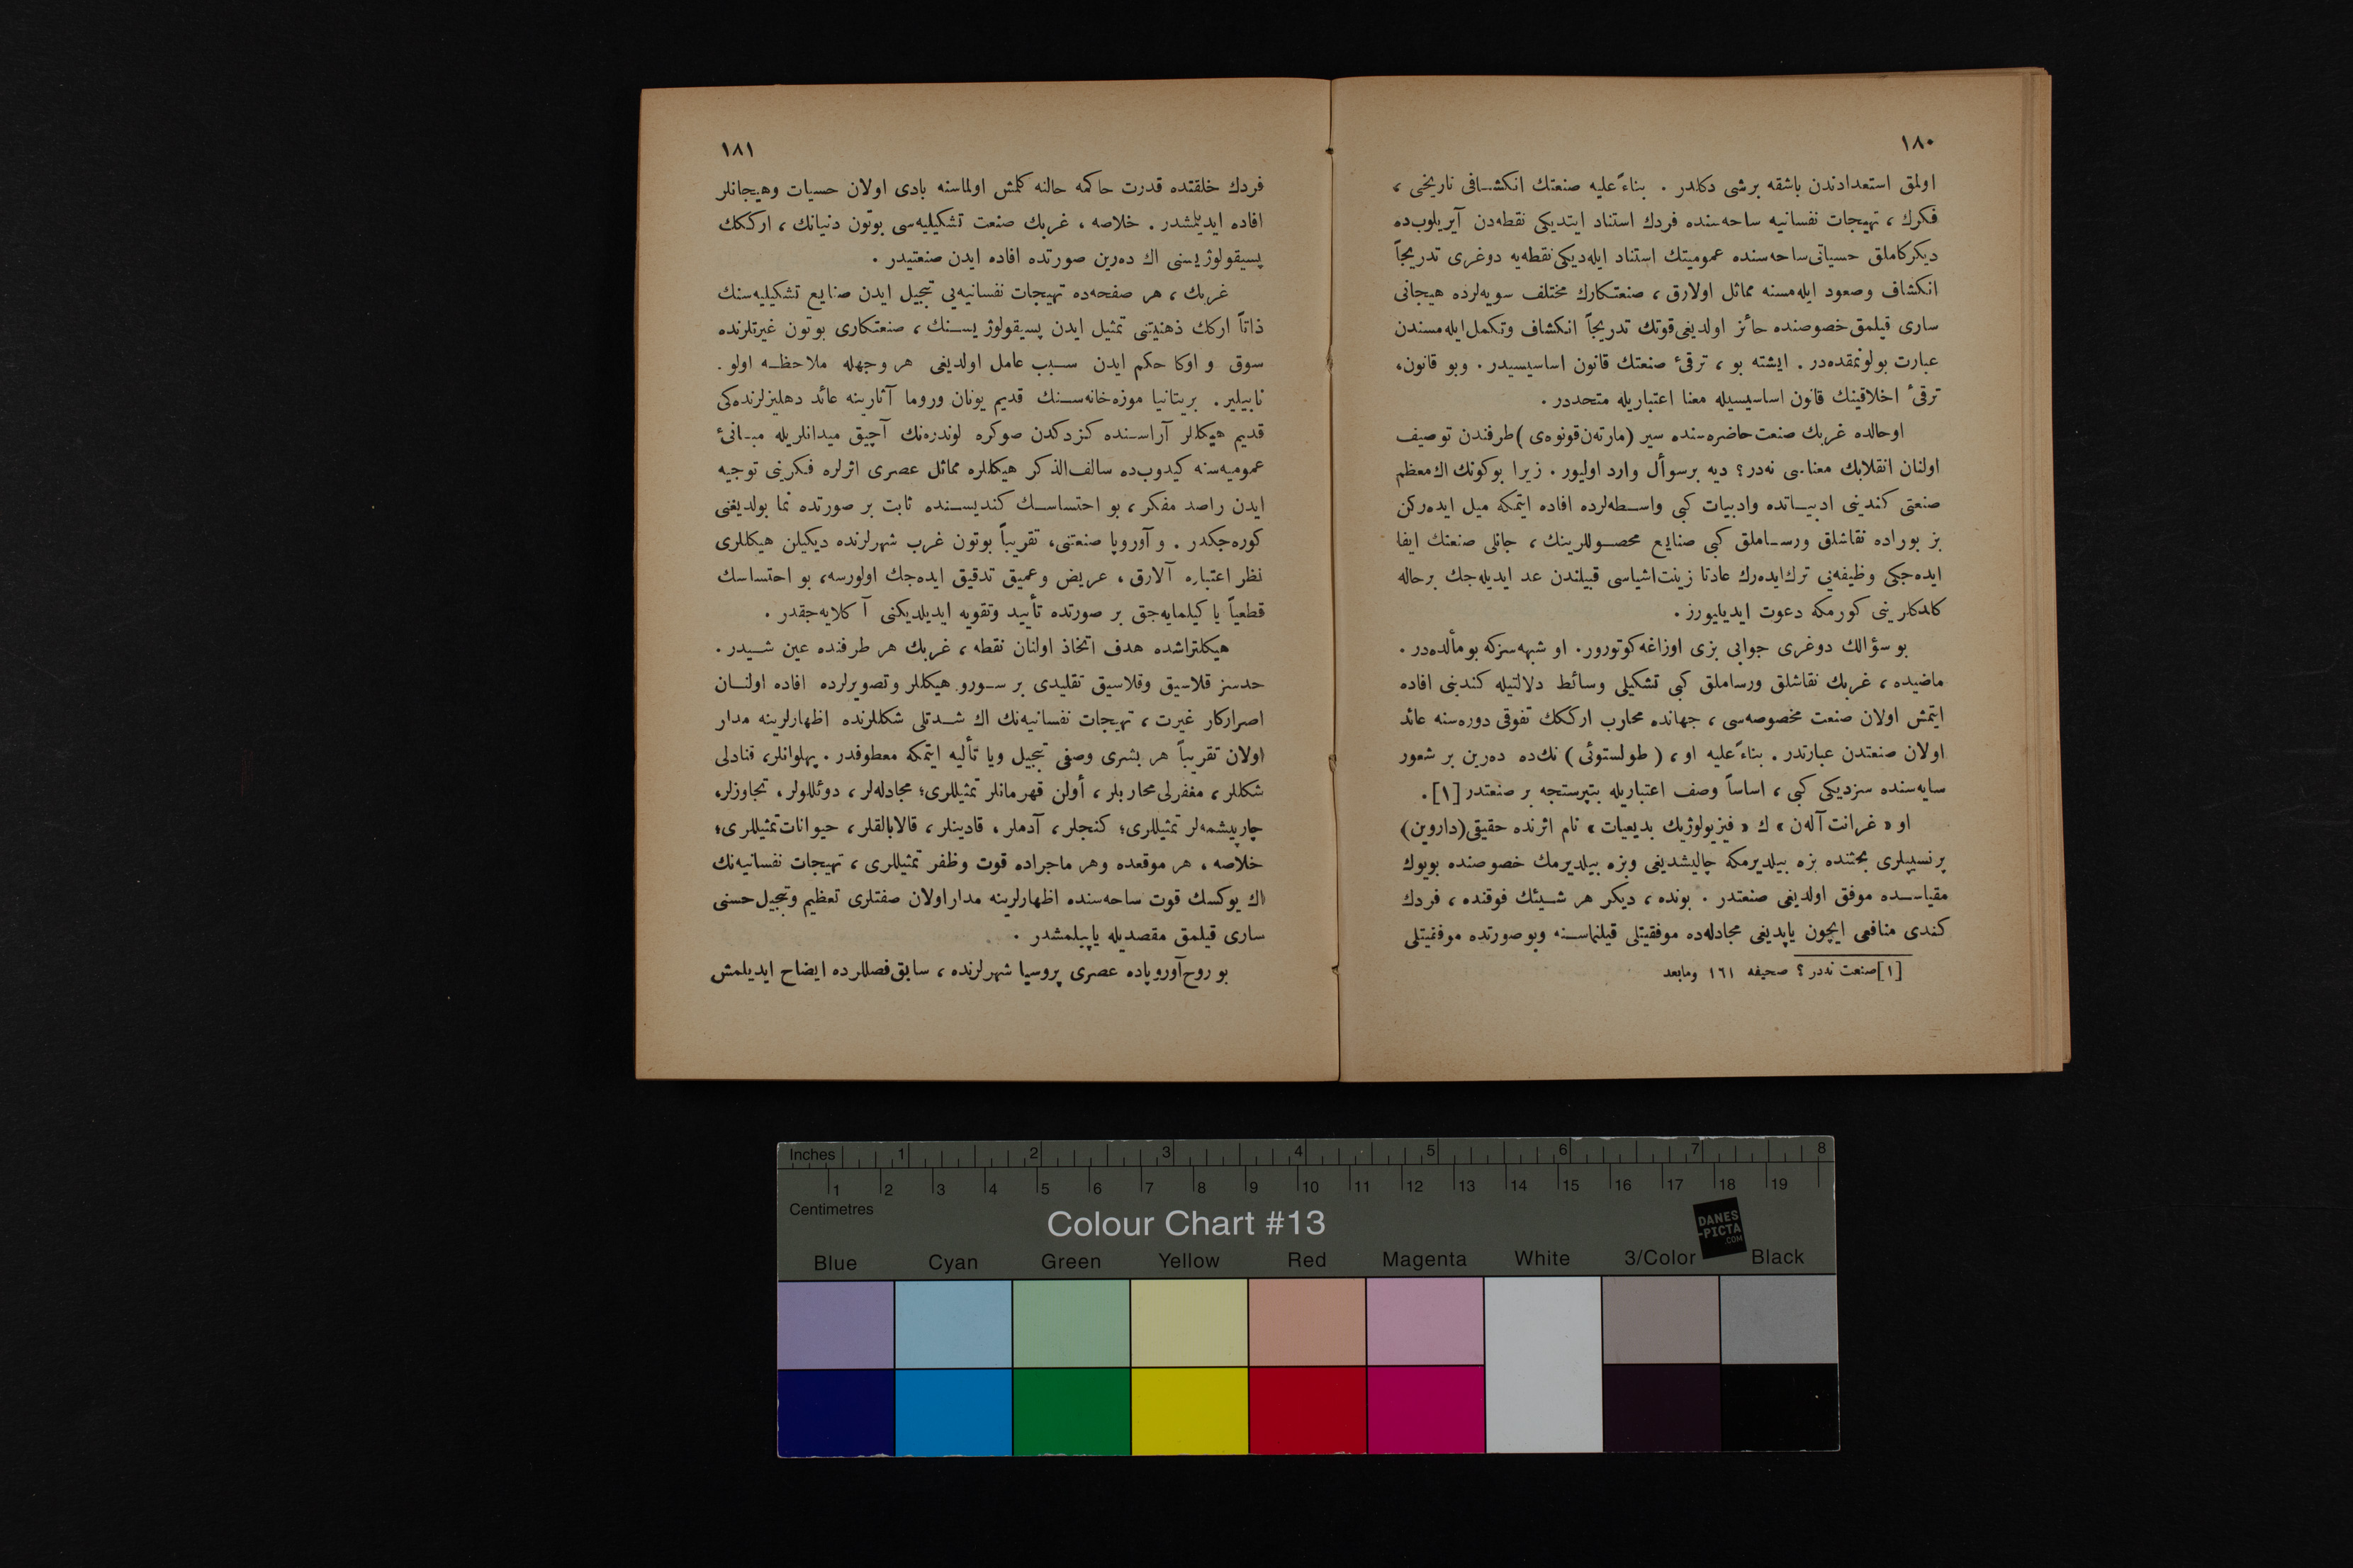 ١٨٠
اولمق استعدادندن باشقه برشی دكلدر . بناءً علیه صنعتك انكشافی تاریخی ،
فكرك ، تهیجات نفسانیه ساحه‌سنده فردك استناد ایتدیكی نقطه‌دن آیریلوب‌ده
دیكركاملق حسیاتی‌ساحه‌سنده عمومیتك استناد ایله‌دیكی‌نقطه‌یه دوغری تدریجاً
انكشاف وصعود ایله‌مسنه مماثل اولارق ، صنعتكارك مختلف سویه‌لرده هیجانی
ساری قیلمق خصوصنده حائز اولدیغی‌قوتك تدریجاً انكشاف وتكمل‌ایله‌مسندن
عبارت بولونمقده‌در . ایشته بو ، ترقیٔ صنعتك قانون اساسیسیدر . وبو قانون،
ترقیٔ اخلاقینك قانون اساسیسیله معنا اعتباریله متحددر .
اوحالده غربك صنعت‌حاضره‌سنده سیر (مارتەن‌قونوەی) طرفندن توصیف
اولنان انقلابك معناسی نه‌در؟ دیه برسوأل وارد اولیور . زیرا بوكونك اك‌معظم
صنعتی كندینی ادبیاتده وادبیات كبی واسطه‌لرده افاده ایتمكه میل ایده‌ركن
بز بوراده نقاشلق ورساملق كبی صنایع محصوللرینك ، جانلی صنعتك ایفا
ایده‌جكی وظیفه‌یی ترك‌ایده‌رك عادتا زینت‌اشیاسی قبیلندن عد ایدیله‌جك برحاله
كلدكلرینی كورمكه دعوت ایدیلیورز .
بو سؤالك دوغری جوابی بزی اوزاغه‌كوتورور. او شبهه‌سزكه بومألده‌در .
ماضیده ، غربك نقاشلق ورساملق كبی تشكیلی وسائط دلالتیله كندینی افاده
ایتمش اولان صنعت مخصوصه‌سی ، جهانده محارب ارككك تفوقی دوره‌سنه عائد
اولان صنعتدن عبارتدر . بناءً علیه او ، ( طولستوئی ) نك‌ده دەرین بر شعور
سایه‌سنده سزدیكی كبی ، اساساً وصف اعتباریله بتپرستجه بر صنعتدر [١] .
او « غرانت آلەن » ك « فیزیولوژیك بدیعیات » نام اثرنده حقیقی(داروین)
پرنسیپلری بحثنده بزه بیلدیرمكه چالیشدیغی وبزه بیلدیرمك خصوصنده بویوك
مقیاسده موفق اولدیغی صنعتدر . بونده ، دیكر هر شیئك فوقنده ، فردك
كندی منافعی ایچون یاپدیغی مجادله‌ده موفقیتلی قیلنماسنه وبوصورتده موفقیتلی
[١] صنعت نه‌در ؟ صحیفه ١٦١ ومابعد
١٨١
فردك خلقتده قدرت حاكمه حالنه كلمش اولماسنه بادی اولان حسیات وهیجانلر
افاده ایدیلمشدر . خلاصه ، غربك صنعت تشكیلیه‌سی بوتون دنیانك ، ارككك
پسیقولوژیسنی اك دەرین صورتده افاده ایدن صنعتیدر .
غربك ، هر صفحه‌ده تهیجات نفسانیه‌یی تبجیل ایدن صنایع تشكیلیه‌سنك
ذاتاً اركك ذهنیتنی تمثیل ایدن پسیقولوژیسنك ، صنعتكاری بوتون غیرتلرنده
سوق و اوكا حكم ایدن سبب عامل اولدیغی هر وجهله ملاحظه اولو .
نابیلیر . بریتانیا موزه‌خانه‌سنك قدیم یونان وروما آثارینه عائد دهلیزلرنده‌كی
قدیم هیكللر آراسنده كزدكدن صوكره لوندره‌نك آچیق میدانلریله مبانیٔ
عمومیه‌سنه كیدوب‌ده سالف‌الذكر هیكللره مماثل عصری اثرلره فكرینی توجیه
ایدن راصد مفكر ، بو احتساسك كندیسنده ثابت بر صورتده نما بولدیغنی
كوره‌جكدر . و آوروپا صنعتنی، تقریباً بوتون غرب شهرلرنده دیكیلن هیكللری
نظر اعتباره آلارق ، عریض وعمیق تدقیق ایده‌جك اولورسه، بو احتساسك
قطعیاً یاكیلمایه‌جق بر صورتده تأیید وتقویه ایدیلدیكنی آكلایه‌جقدر .
هیكلتراشده هدف اتخاذ اولنان نقطه ، غربك هر طرفنده عین شیدر .
حدسز قلاسیق وقلاسیق تقلیدی بر سورو هیكللر وتصویرلرده افاده اولنان
اصراركار غیرت ، تهیجات نفسانیه‌نك اك شدتلی شكللرنده اظهارلرینه مدار
اولان تقریباً هر بشری وصفی تبجیل ویا تألیه ایتمكه معطوفدر . پهلوانلر، قنادلی
شكللر ، مغفرلی‌محاربلر ، أولن قهرمانلر تمثیللری؛ مجادله‌لر ، دوئللولر ، تجاوزلر،
چارپیشمه‌لر تمثیللری؛ كنجلر ، آدملر ، قادینلر ، قالابالقلر ، حیوانات تمثیللری؛
خلاصه ، هر موقعده وهر ماجراده قوت وظفر تمثیللری ، تهیجات نفسانیه‌نك
اك یوكسك قوت ساحه‌سنده اظهارلرینه مداراولان صفتلری تعظیم وتبجیل‌حسنی
ساری قیلمق مقصدیله یاپیلمشدر .
بو روح‌آوروپاده عصری پروسیا شهرلرنده ، سابق‌فصللرده ایضاح ایدیلمش
Inches 1 2 3 4 5 6 7 8
1 2 3 4 5 6 7 8 9 10 11 12 13 14 15 16 17 18 19
Centimetres
Colour Chart #13
DANES
-PICTA
.COM
Blue Cyan Green Yellow Red Magenta White 3/Color Black